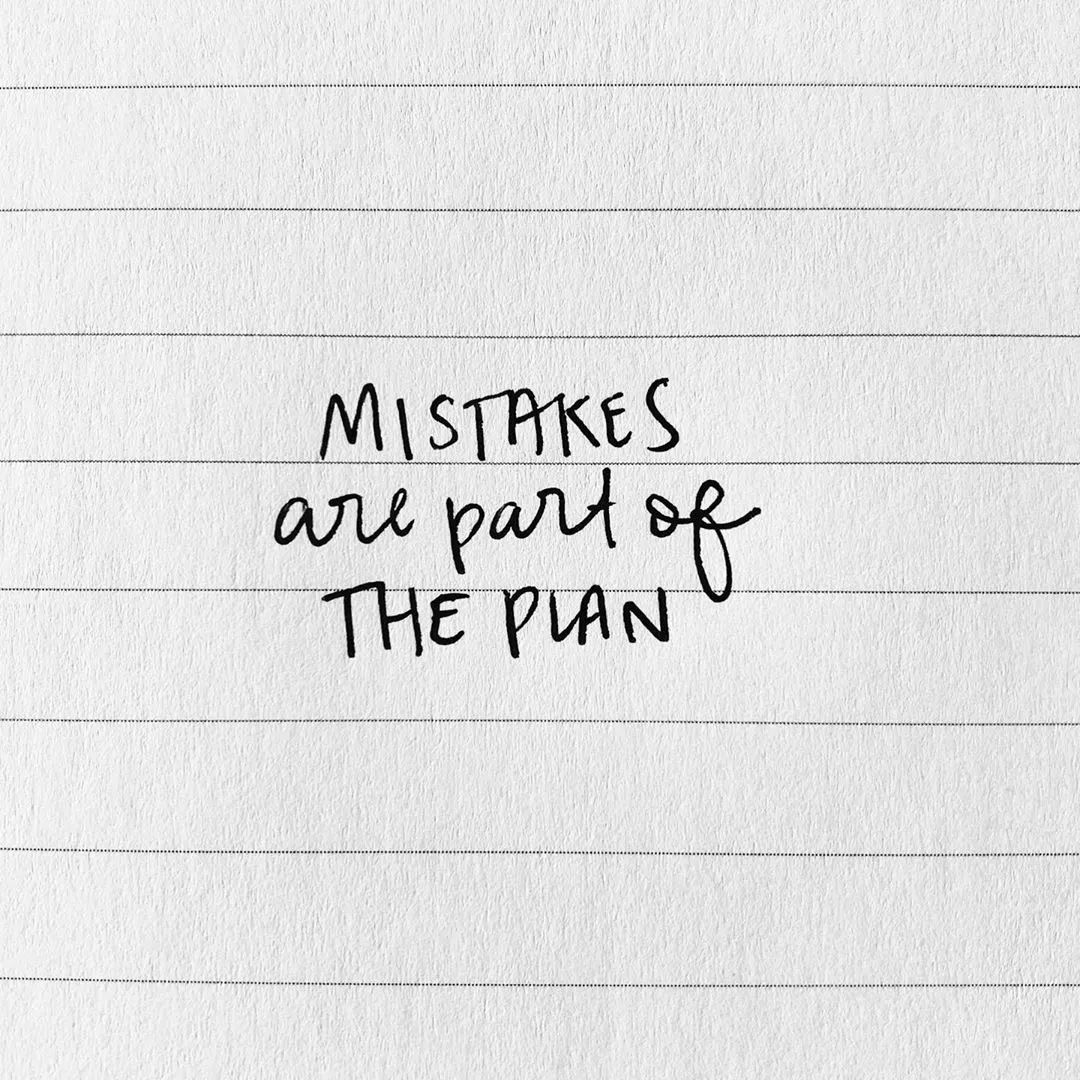 MISTAKES
are part of
THE PLAN